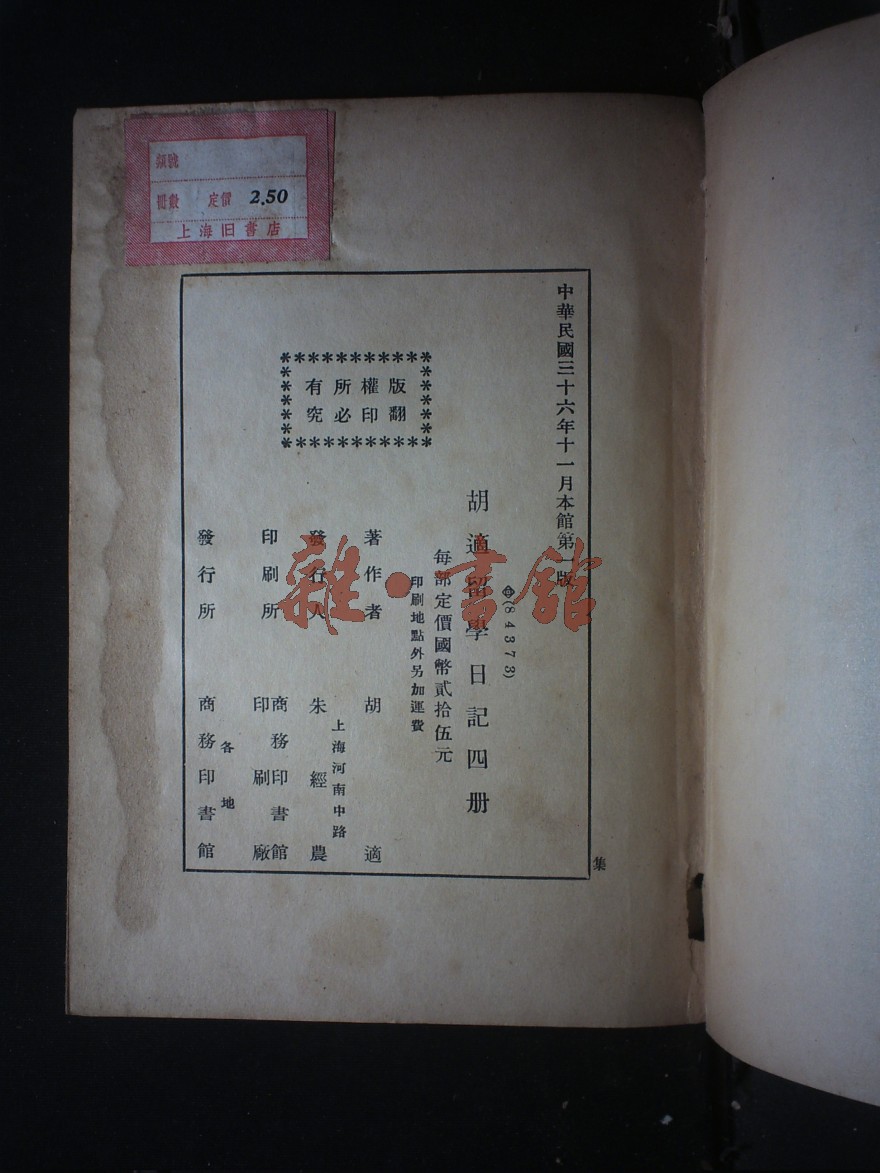 類號
冊數 定價 2.50
上海旧書店
中華民國三十六年十一月本館第一版
(84373)
胡適留學日記四册
每部定價國幣貳拾伍元
印刷地點外另加運費
版權所有
翻印必究
著作者 胡適
上海河南中路
發行人 朱經農
印刷所 商務印書館印刷廠
各地
發行所 商務印書館
集
雜·書館